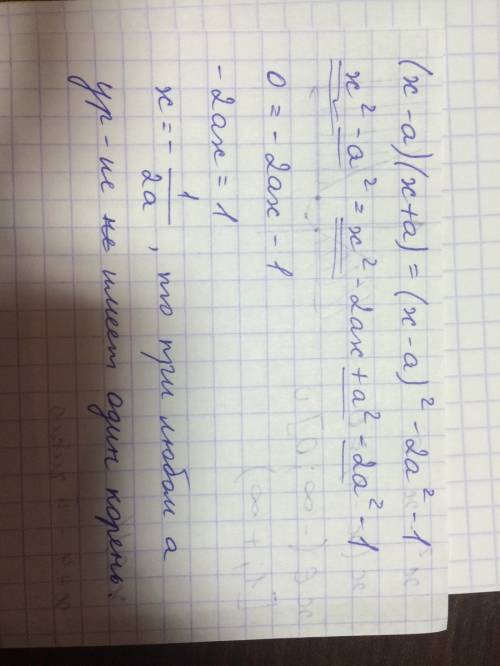 (x - a)(x + a) = (x - a)² - 2a² - 1
x² - a² = x² - 2ax + a² - 2a² - 1
0 = - 2ax - 1
- 2ax = 1
x = - 1/2a , то при любом a
ур-ие не имеет один корень.